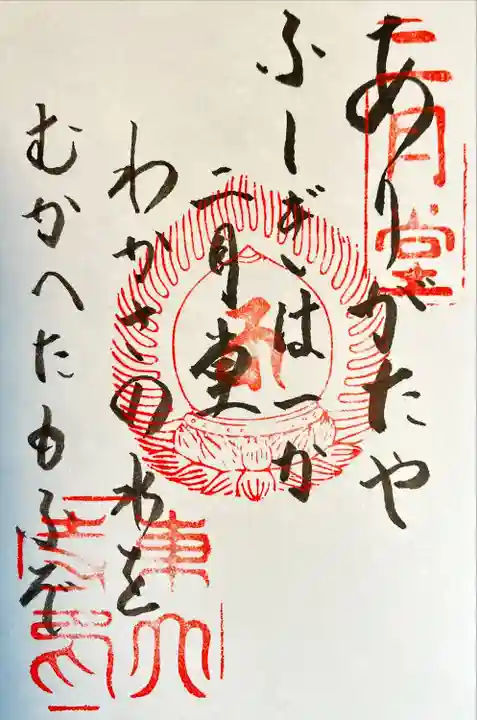 二月堂
ありがたや
ふしぎは一か
二月堂
わかさの水を
むかへたもふぞ
東大